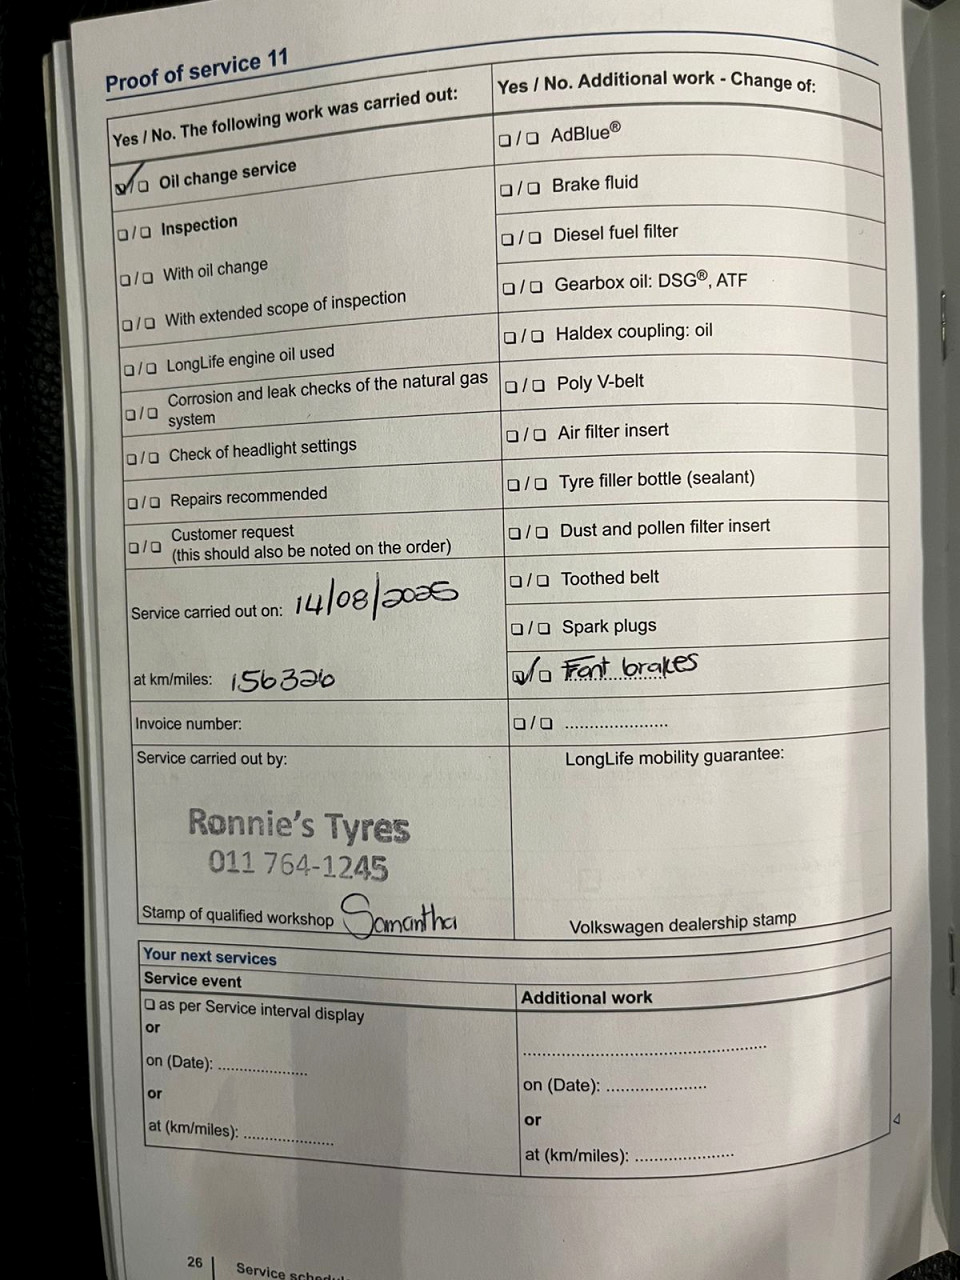 Proof of service 11
Yes / No. The following work was carried out:
☑/☐ Oil change service
☐/☐ Inspection
☐/☐ With oil change
☐/☐ With extended scope of inspection
☐/☐ LongLife engine oil used
☐/☐ Corrosion and leak checks of the natural gas
system
☐/☐ Check of headlight settings
☐/☐ Repairs recommended
☐/☐ Customer request
(this should also be noted on the order)
Service carried out on: 14/08/2025
at km/miles: 156326
Invoice number:
Service carried out by:
Ronnie's Tyres
011 764-1245
Stamp of qualified workshop Samantha
Yes / No. Additional work - Change of:
☐/☐ AdBlue®
☐/☐ Brake fluid
☐/☐ Diesel fuel filter
☐/☐ Gearbox oil: DSG®, ATF
☐/☐ Haldex coupling: oil
☐/☐ Poly V-belt
☐/☐ Air filter insert
☐/☐ Tyre filler bottle (sealant)
☐/☐ Dust and pollen filter insert
☐/☐ Toothed belt
☐/☐ Spark plugs
☑/☐ Font brakes
☐/☐ .....................
LongLife mobility guarantee:
Volkswagen dealership stamp
Your next services
Service event
☐ as per Service interval display
or
on (Date): ..................
or
at (km/miles): ..................
Additional work
..................................................
on (Date): ....................
or
at (km/miles): ....................
26 | Service